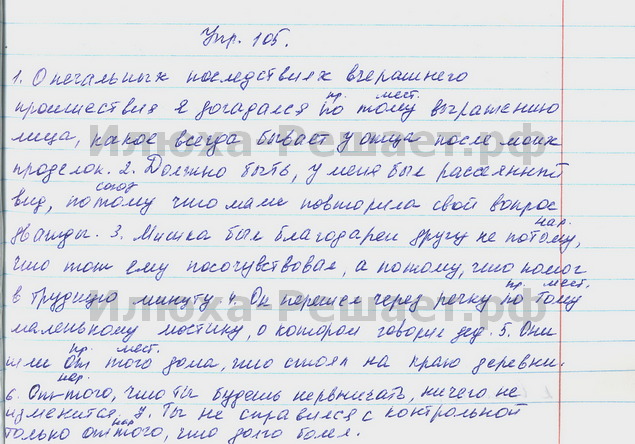 Упр. 105.
1. О печальных последствиях вчерашнего
пр. мест.
происшествия я догадался по тому выражению
лица, какое всегда бывает у отца после моих
проделок. 2. Должно быть, у меня был рассеянный
союз
вид, потому что мама повторила свой вопрос
нар.
дважды. 3. Мишка был благодарен другу не потому,
что тот ему посочувствовал, а потому, что помог
пр. мест.
в трудную минуту 4. Он перешел через речку по тому
маленькому мостику, о котором говорил дед. 5. Они
пр. мест.
шли от того дома, что стоял на краю деревни.
нар.
6. Оттого, что ты будешь нервничать, ничего не
изменится. 7. Ты не справился с контрольной
нар
только оттого, что долго болел.
Илюха-Решает.рф
Илюха-Решает.рф